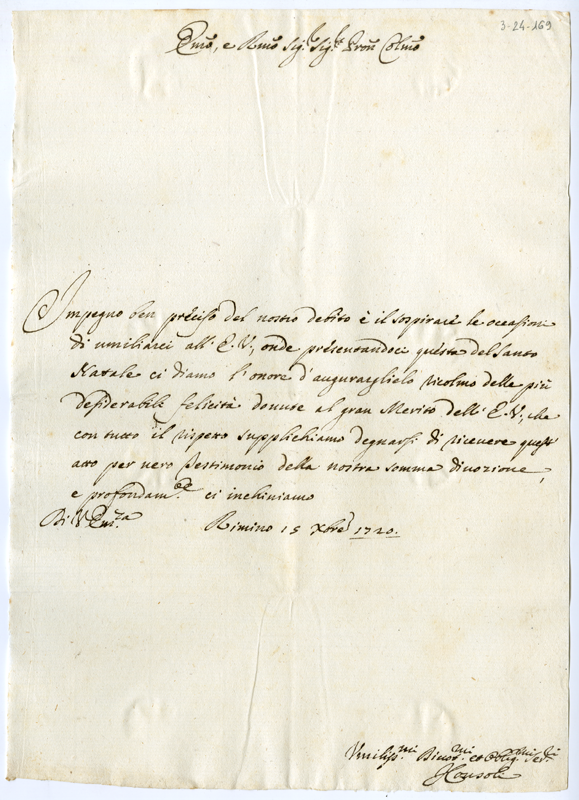 3-24-169
Emo, e Rmo Sig.r Sig.r Pron Colmo
Impegno ben preciso del nostro debito è il sospirare le occasioni
di umiliarci all' E. V., onde presentandoci questa del Santo
Natale ci diamo l'onore d'augurarglielo ricolmo delle più
desiderabili felicità dovute al gran Merito dell' E. V., che
con tutto il rispetto supplichiamo degnarsi di ricevere quest
atto per vero Testimonio della nostra somma divozione,
e profondam.te ci inchiniamo
Di V Em.za
Rimino 15 Xbre 1720.
Umiliss.mi Divot.mi et Obblig.mi Ser.ri
I Consoli